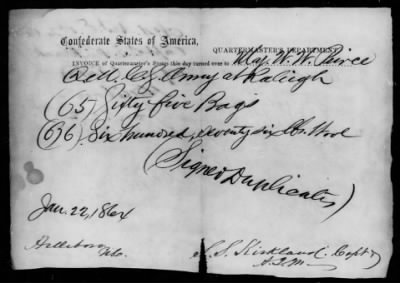 Confederate States of America,
QUARTERMASTER'S DEPARTMENT.
INVOICE of Quartermaster's Stores this day turned over to Maj. W. W. Peirce
Q.M. C.S. Army at Raleigh
(65) Sixty-five Bags
(676) Six hundred, seventy six lbs. Wool
(Signed Duplicates)
Jan. 22, 1864
Hillsboro,
S. S. Kirkland, Capt &
A.Q.M.